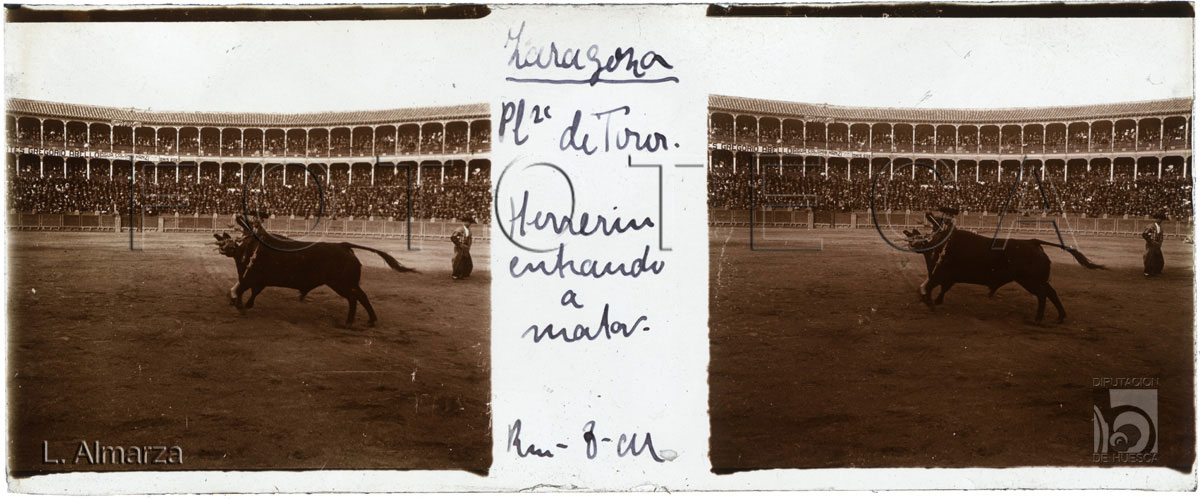 Zaragoza
Plza de Toros.
Herrerin
entrando
a
matar.
GREGORIO
FOTOTECA
L. Almarza
DIPUTACION
DE HUESCA